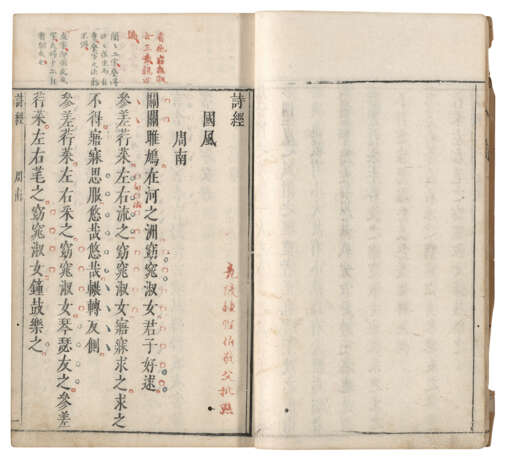 詩經
國風
周南
竟陵鍾惺伯敬父批點
關關雎鳩在河之洲窈窕淑女君子好逑
參差荇菜左右流之窈窕淑女寤寐求之求之
不得寤寐思服悠哉悠哉輾轉反側
參差荇菜左右采之窈窕淑女琴瑟友之參差
荇菜左右芼之窈窕淑女鐘鼓樂之
詩經 周南 一